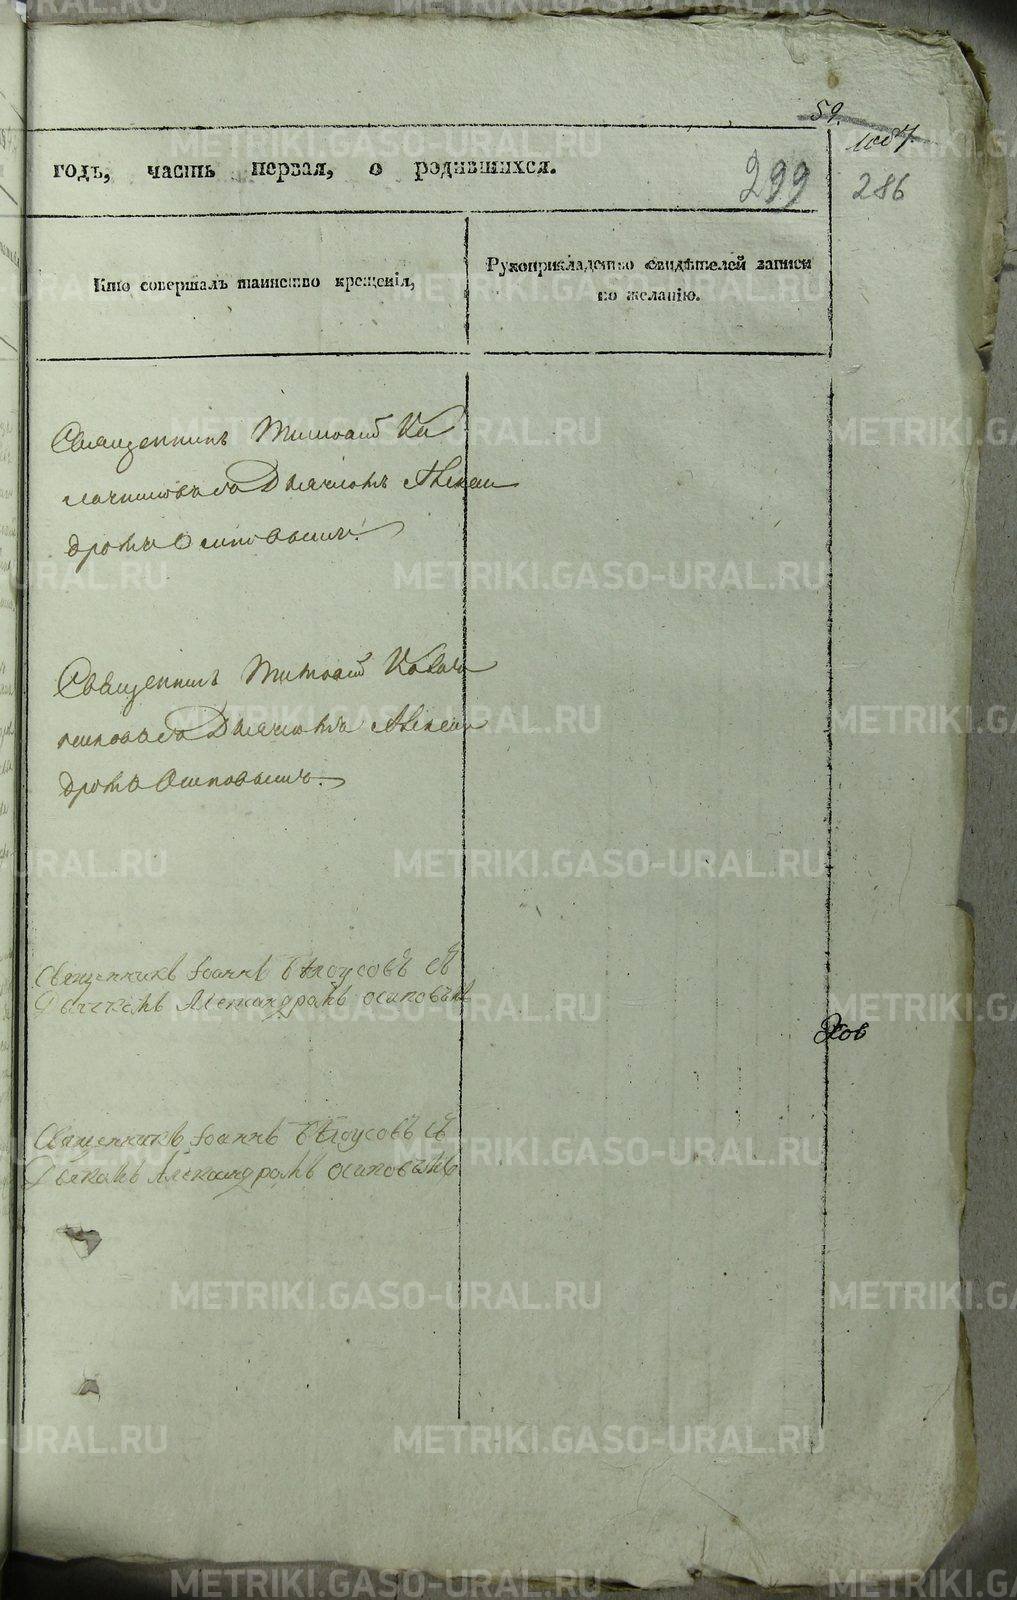 59.
годъ, часть первая, о родившихся.
299
286
Кто совершалъ таинство крещенія,
Рукоприкладство свидѣтелей записи
по желанію.
Священникъ Тимофей Ка
лачниковъ съ Дьячкомъ Алексан
дромъ Осиповымъ.
Священникъ Тимофей Калач
никовъ съ Дьячкомъ Алексан
дромъ Осиповымъ.
Священникъ Іоаннъ Бѣлоусовъ съ
Дьячкомъ Александромъ Осиповымъ
Священникъ Іоаннъ Бѣлоусовъ съ
Дьячкомъ Александромъ Осиповымъ
METRIKI.GASO-URAL.RU